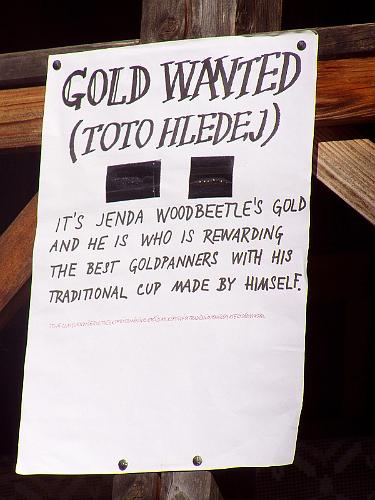 GOLD WANTED
(TOTO HLEDEJ)
IT'S JENDA WOODBEETLE'S GOLD
AND HE IS WHO IS REWARDING
THE BEST GOLDPANNERS WITH HIS
TRADITIONAL CUP MADE BY HIMSELF.